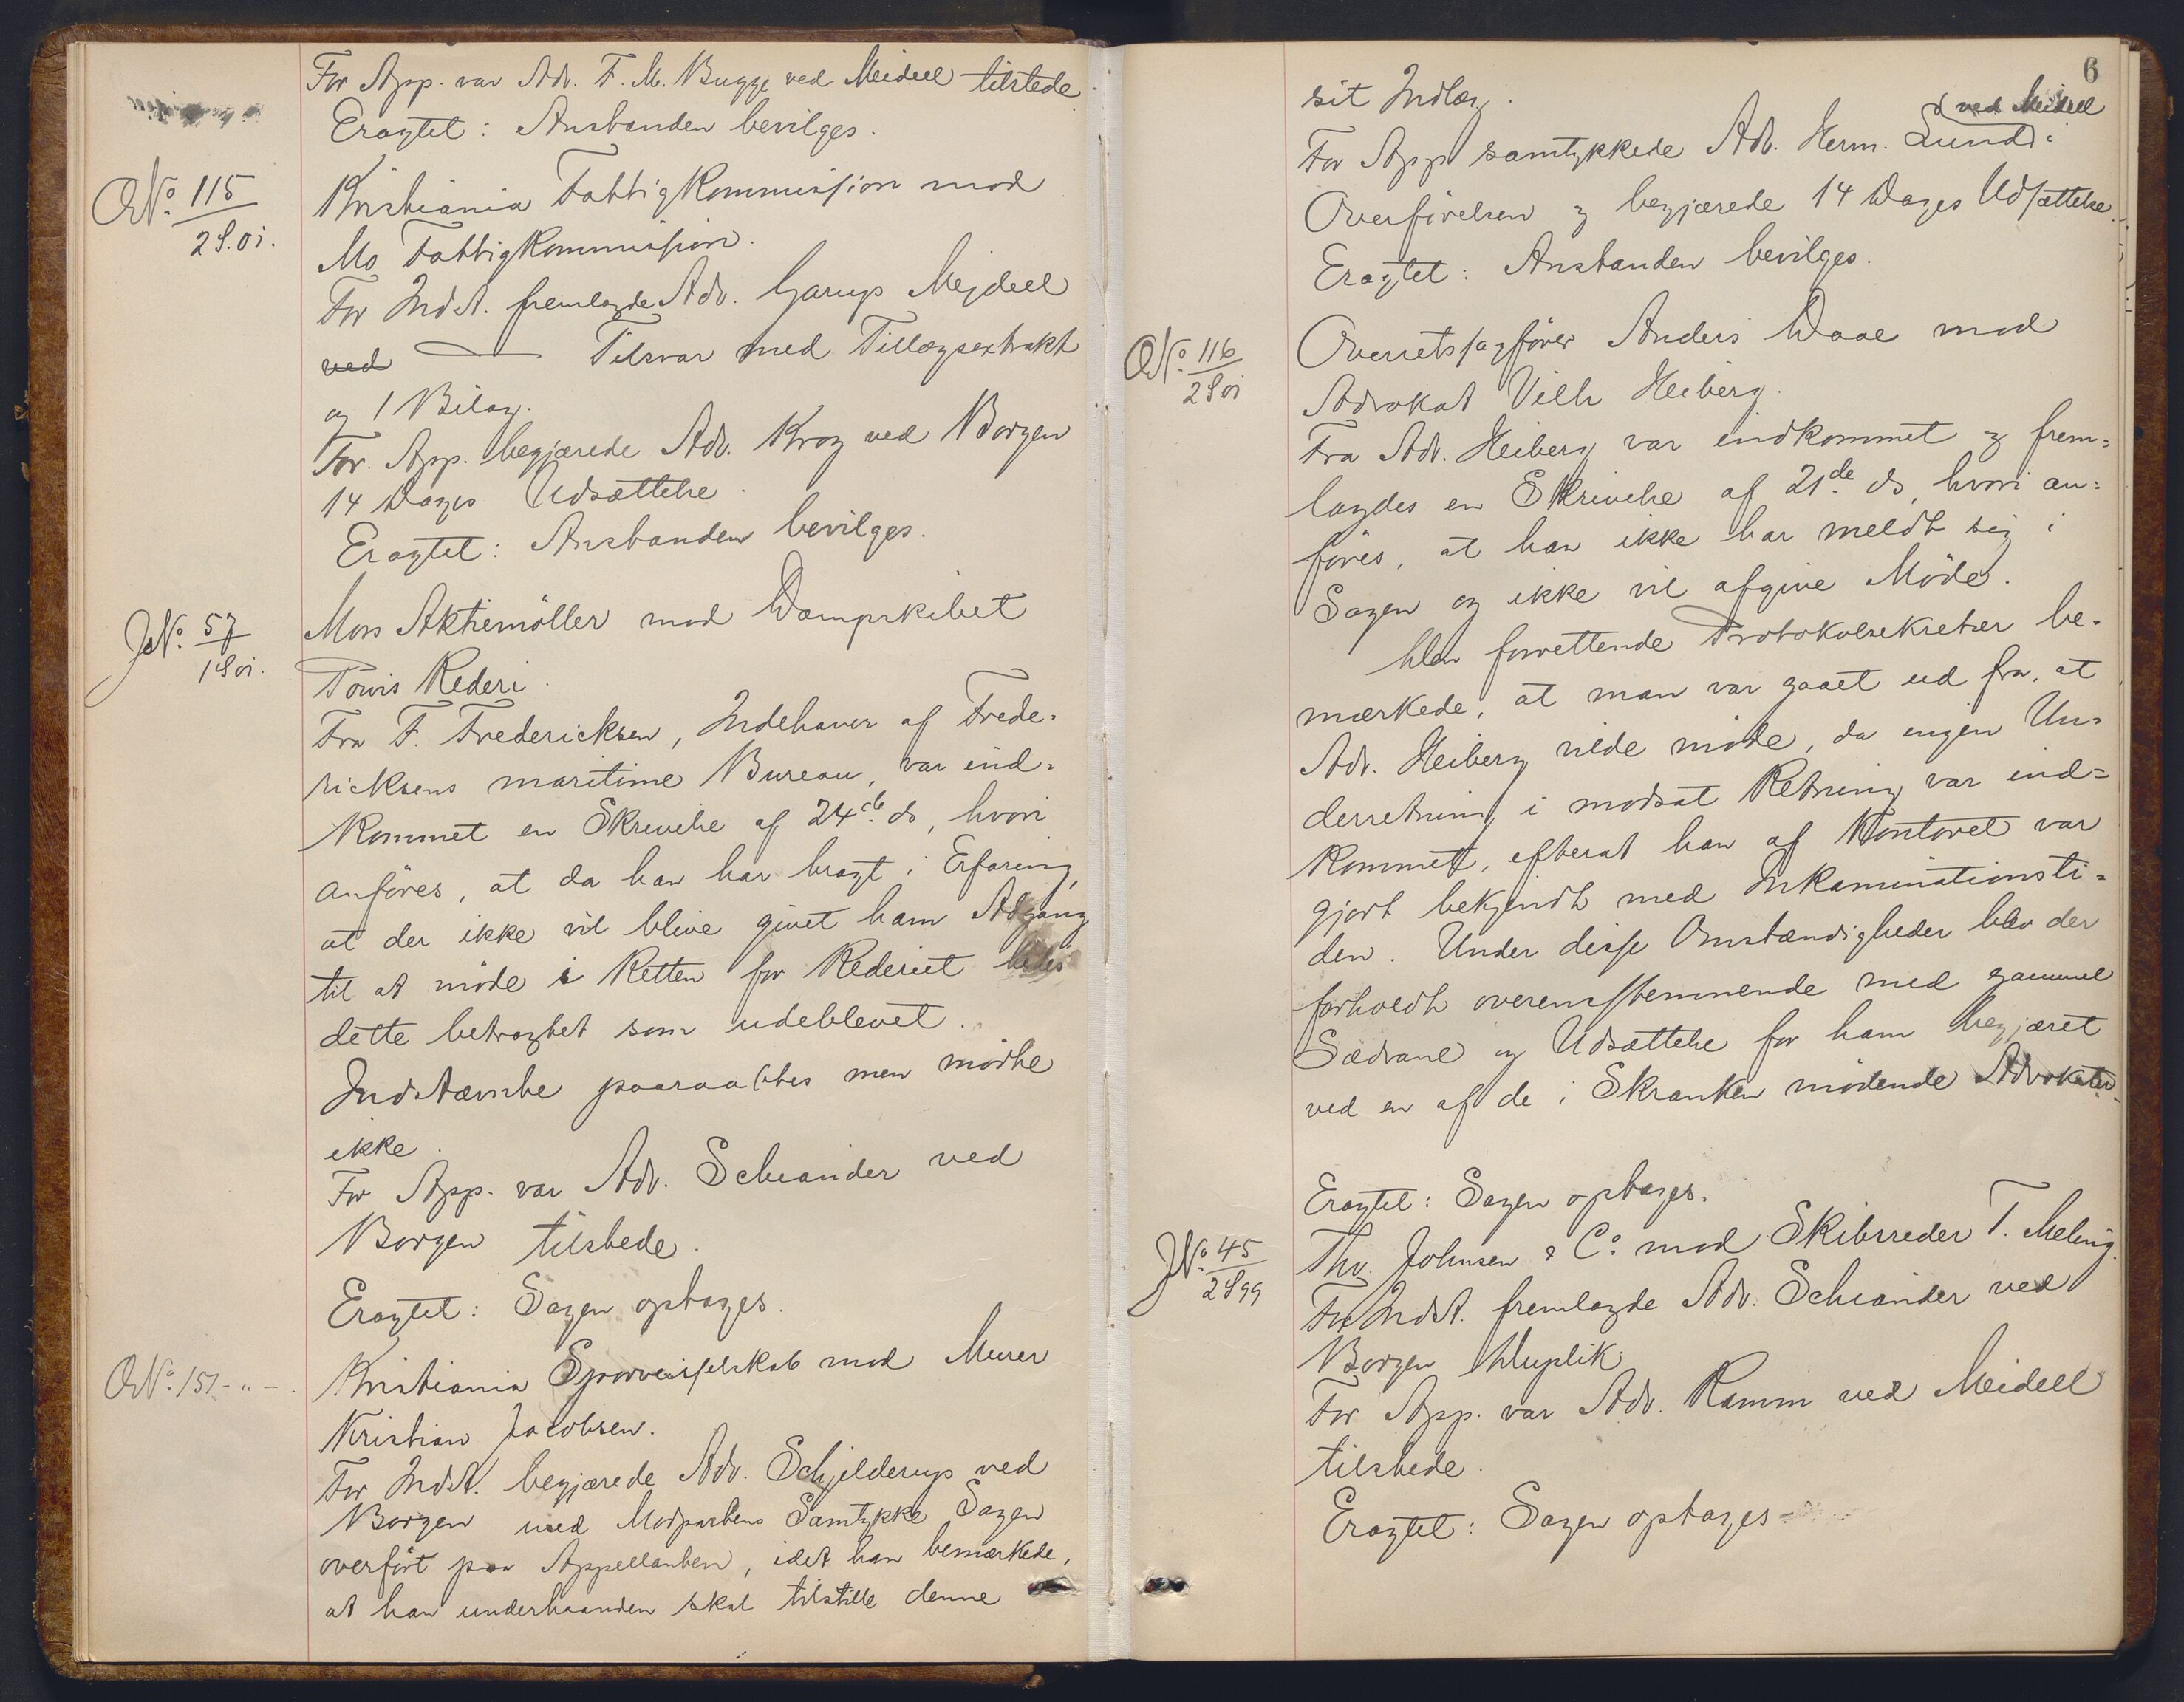 For App. var Adv. F. M. Bugge ved Meidell tilstede.
Eragtet: Anstanden bevilges.
O No. 115
2 S. 01.
Kristiania Fattigkommission mod
Mo Fattigkommission.
For Indst. fremlagde Adv. Garup Mejdell
ved — Tilsvar med Tillægsextrakt
og 1 Bilag.
For. App. begjærede Adv. Krag ved Borgen
14 Dages Udsættelse.
Eragtet: Anstanden bevilges.
J No. 57
1 S 01.
Moss Aktiemöller mod Dampskibet
Powis Rederi.
Fra F. Fredericksen, Indehaver af Frede-
ricksens maritime Bureau, var ind-
kommet en Skrivelse af 24de ds, hvori
anföres, at da han har bragt i Erfaring,
at der ikke vil blive givet ham Adgang
til at möde i Retten for Rederiet bedes
dette betragtet som udeblevet.
Indstævnte paaraabtes men mödte
ikke.
For App. var Adv. Scheander ved
Borgen tilstede.
Eragtet: Sagen optages.
O No. 151 - " -
Kristiania Sporveisselskab mod Murer
Kristian Jacobsen.
For Indst. begjærede Adv. Schjelderup ved
Borgen med Modpartens Samtykke Sagen
overfört paa Appellanten, idet han bemærkede,
at han underhaanden skal tilstille denne
6
sit Indlæg.
ved Meidell
For App samtykkede Adv. Herm. Lund i
Overförelsen og begjærede 14 Dages Udsættelse.
Eragtet: Anstanden bevilges.
O No. 116
2 S 01
Overretssagförer Anders Daae mod
Advokat Vilh Heiberg.
Fra Adv. Heiberg var indkommet og frem-
lagdes en Skrivelse af 21de ds, hvori an-
föres, at han ikke har meldt sig i
Sagen og ikke vil afgive Möde.
Den forrettende Protokolsekretær be-
mærkede, at man var gaaet ud fra, at
Adv. Heiberg vilde möde, da ingen Un-
derretning i modsat Retning var ind-
kommet, efterat han af Kontoret var
gjort bekjendt med Inkaminationsti-
den. Under disse Omstændigheder blev der
forholdt overensstemmende med gammel
Sædvane og Udsættelse for ham begjæret
ved en af de i Skranken mödende Advokater.
Eragtet: Sagen optages.
J No. 45
2 S 99
Thv. Johnsen & Co. mod Skibsreder T. Meling.
For Indst. fremlagde Adv. Scheander ved
Borgen Duplik
For App. var Adv. Ramm ved Meidell
tilstede.
Eragtet: Sagen optages